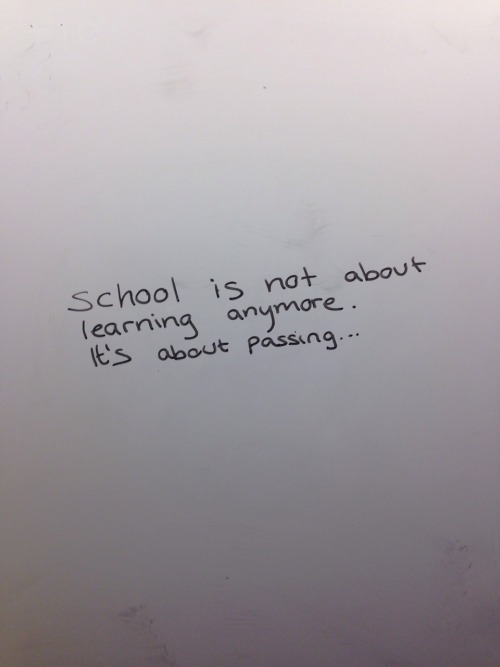 School is not about
learning anymore.
It's about passing...